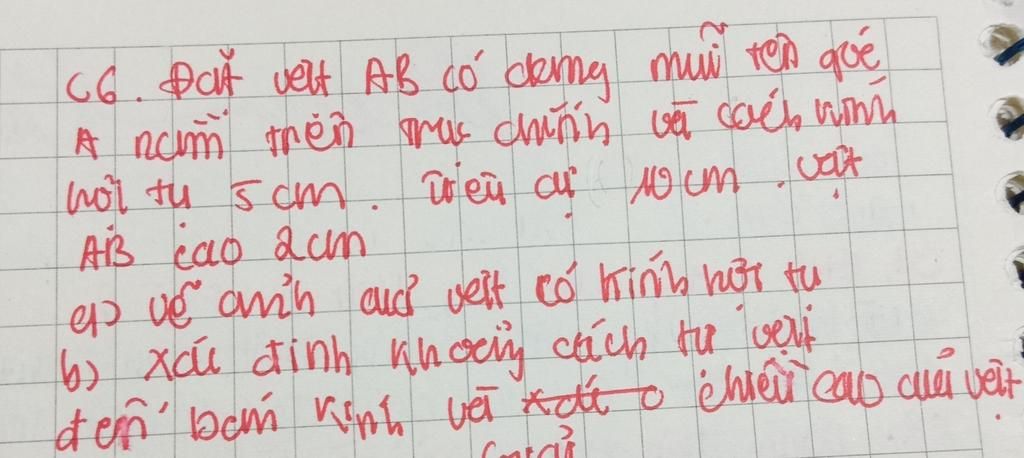 C6. Đặt vật AB có dạng mũi tên
A nằm trên trục chính và cách kính
hội tụ 5 cm. Tiêu cự 10 cm. Vật
AB cao 2cm
a) vẽ ảnh của vật có kính hội tụ
b) xác định khoảng cách từ vật
đến kính và chiều cao của vật